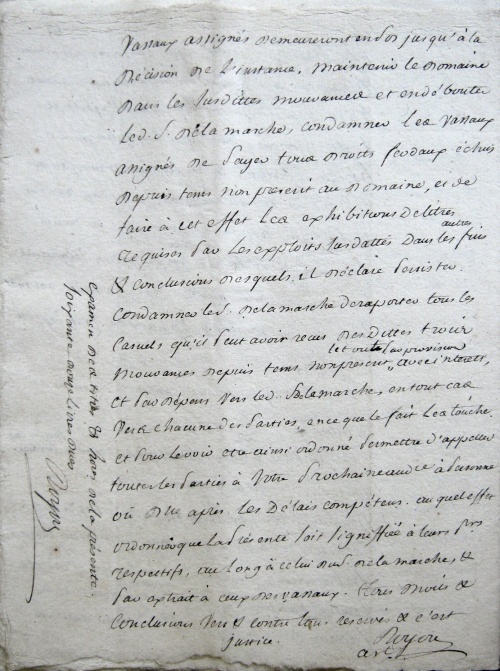 Vassaux assignés demeureront en dos jusqu'à la
décision de l'instance, maintenir le domaine
dans les susdittes mouvances et en débouter
led. S. de la marche, condamner les vassaux
assignés de payer tous droits féodaux échus
depuis tems non prescrit au domaine, et de
faire à cet effet les exhibitions de titres
requises par les exploits susdattés dans les
autres
fins
& conclusions desquels il déclare persister.
Condamner le S. de la marche de raporter tous les
casuels qu'il peut avoir reçus desdittes trois
le tout par provision
mouvances depuis tems non prescrit, avec interets,
et par dépens vers led. S. de la marche, en tout cas
vers chacune des parties, en ce que le fait les touche.
et pour le voir etre ainsi ordonné permettre d'appeller
toutes les parties à votre prochaine audce à personne
ou dlle après les délais compétens. auquel effet
ordonner que la présente soit signiffiée à leurs prs
respectifs, au long à celui dud. S. de la marche, &
par extrait à ceux des vassaux. Tous droits &
conclusions vers & contre tous reservés & c'est
justice.
Royou
avt.
examen des titres & hors de la présente.
soixante douze livres
Royou